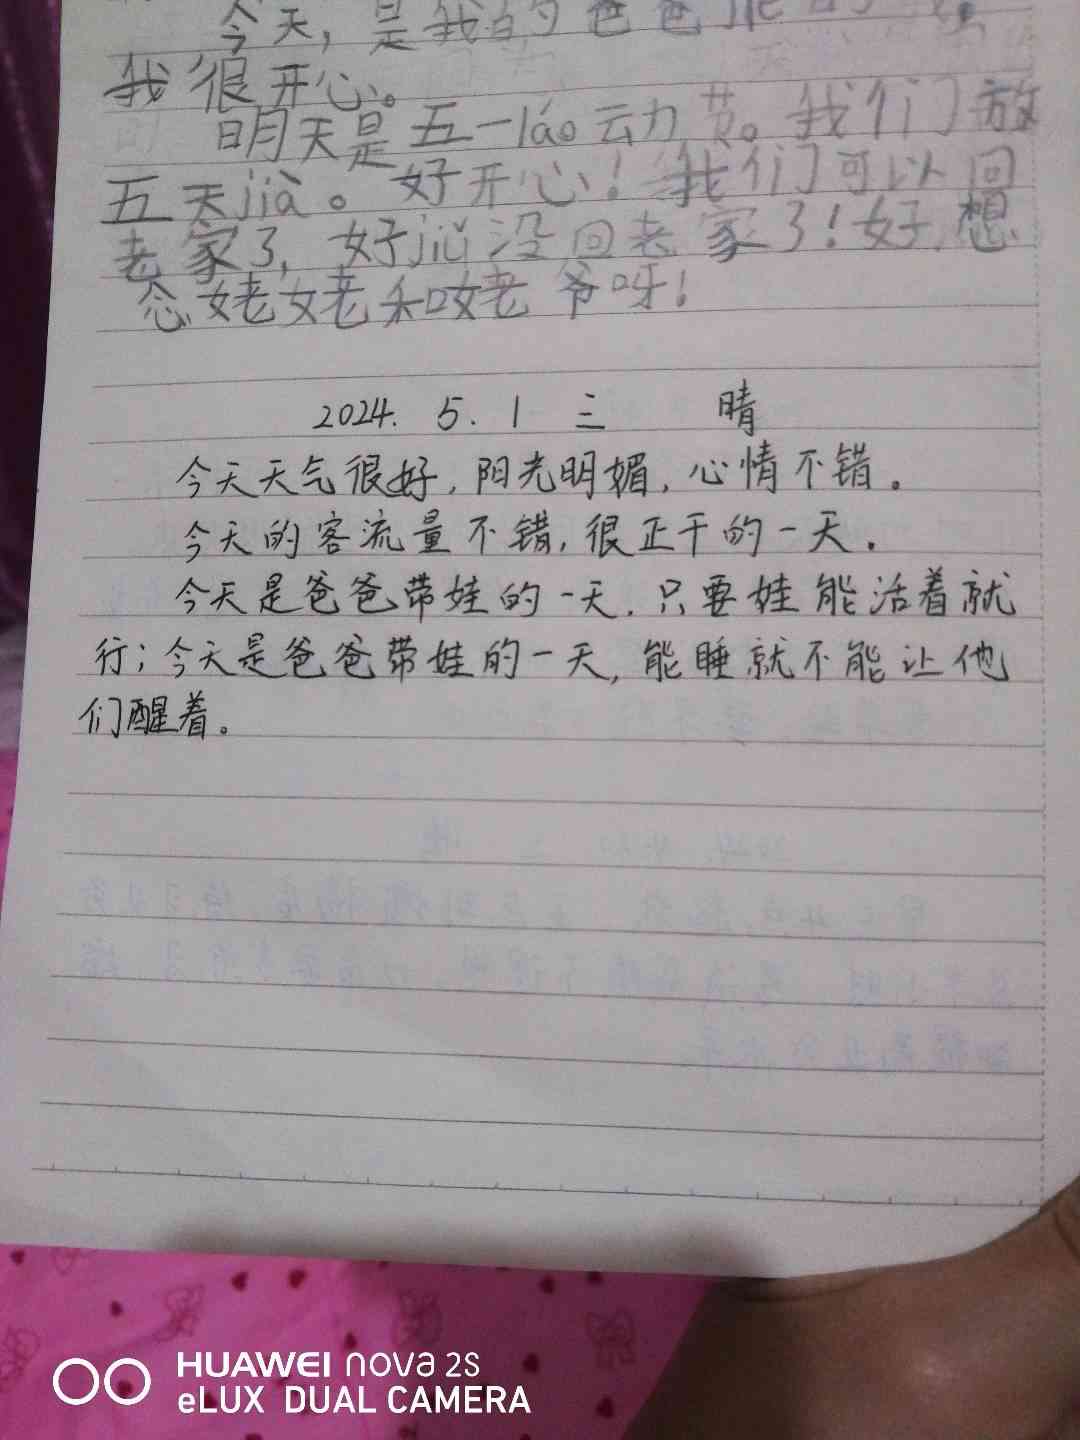 今天,是我的爸爸
我很开心。
明天是五一láo动节。我们放
五天jià。好开心!我们可以回
老家了,好jiǔ没回老家了!好想
念姥姥和姥爷呀!
2024. 5. 1 三 晴
今天天气很好,阳光明媚,心情不错。
今天的客流量不错,很正干的一天。
今天是爸爸带娃的一天,只要娃能活着就
行;今天是爸爸带娃的一天,能睡就不能让他
们醒着。
HUAWEI nova 2s
eLUX DUAL CAMERA